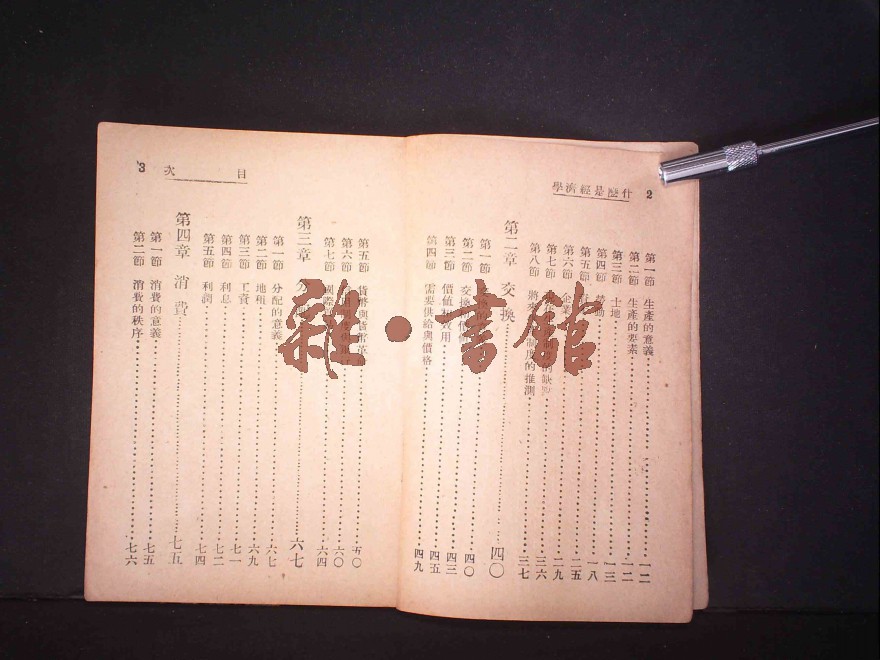 2 什麼是經濟學
第一節 生產的意義 一二
第二節 生產的要素 一二
第三節 土地 一三
第四節 勞動 一八
第五節 二五
第六節 企業 二九
第七節 的缺點 三六
第八節 將來 制度的推測 三七
第二章 交換 四〇
第一節 四〇
第二節 交換 四三
第三節 價值 效用 四五
第四節 需要供給與價格 四九
3 目次
第五節 貨幣與貨幣 五〇
第六節 六〇
第七節 國際 六四
第三章 分 六七
第一節 分配的意義 六七
第二節 地租 六九
第三節 工資 七一
第四節 利息 七二
第五節 利潤 七四
第四章 消費 七五
第一節 消費的意義 七五
第二節 消費的秩序 七六
雜·書館